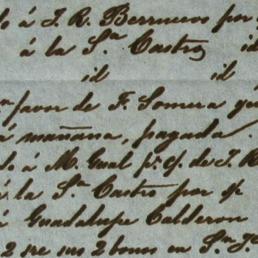 á J. R. Berrueco por
á la S.ª Castro, id
id id
favor de F. Somera
á mañana, pagada
á M. Gual p.r cp. de J. R.
á la S.ª Castro por cp
á Guadalupe Calderon
2 sre sus 2 bonos en S.n